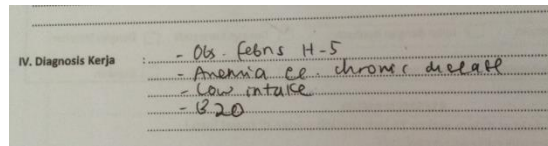 IV. Diagnosis Kerja : - Obs. febris H-5
- Anemia ec. chronic disease
- Low intake
- B20